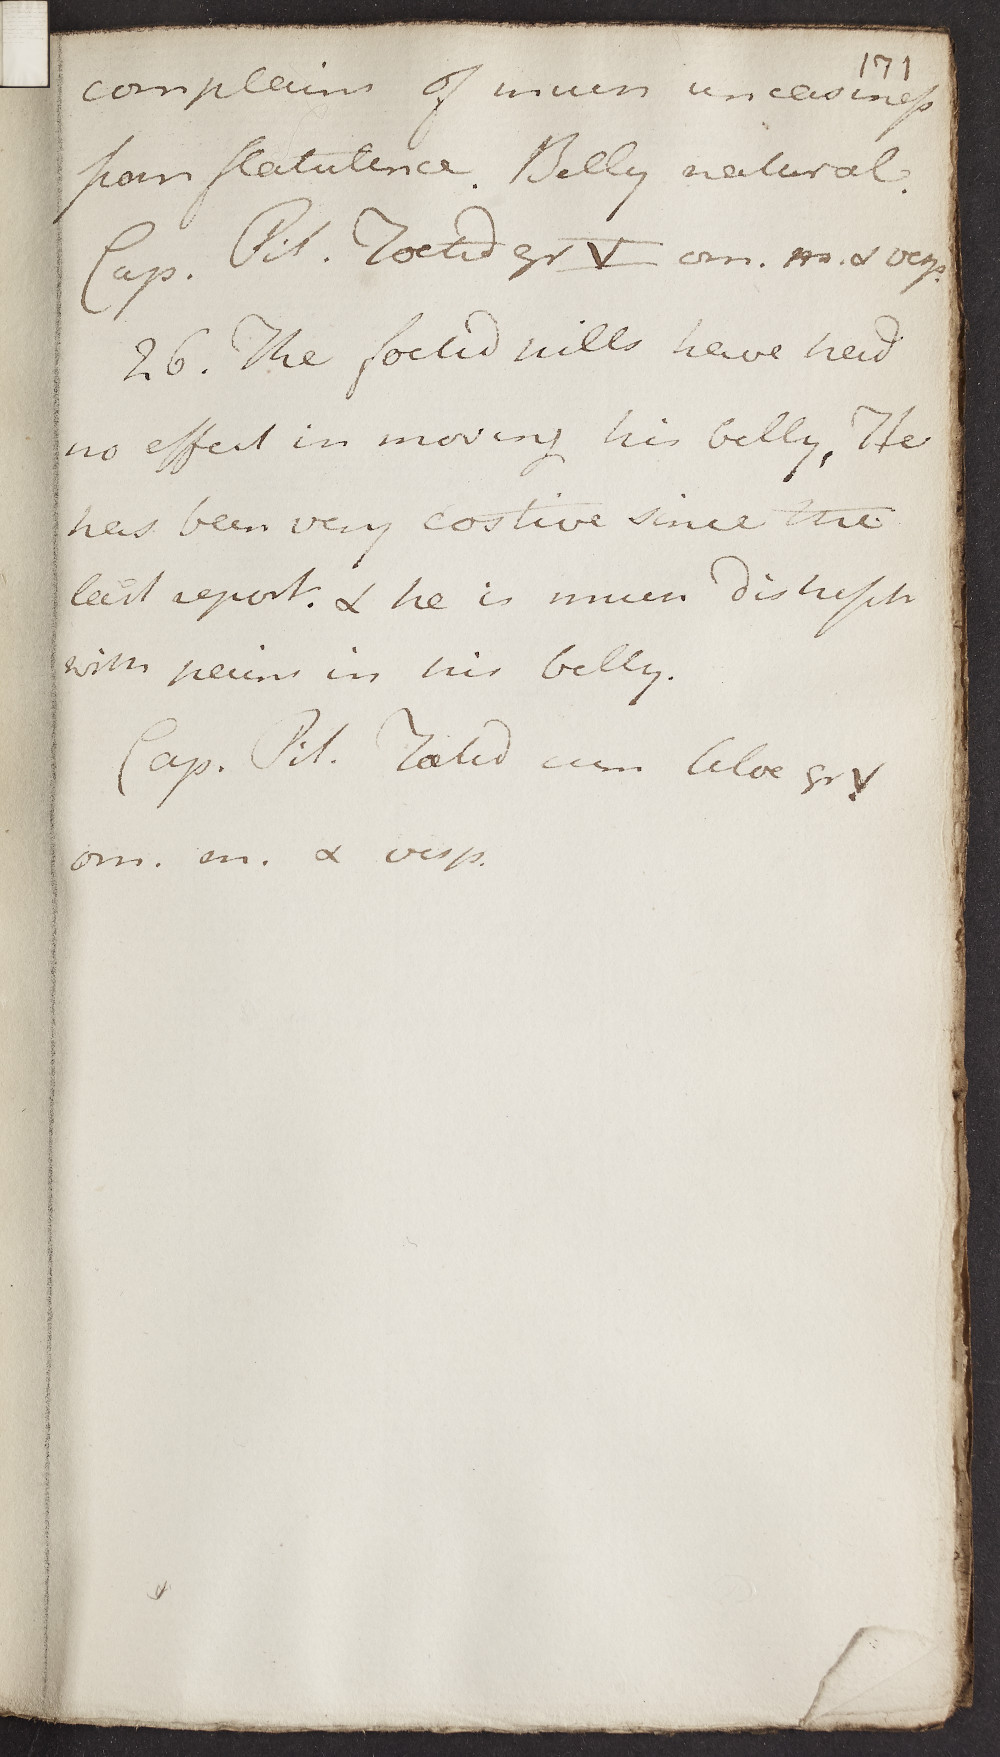 171
complains of much uneasiness
from flatulence. Belly natural.
Cap. Pil. Foetid gr V om. m. & vesp.
26. The foetid pills have had
no effect in moving his belly, He
has been very costive since the
last report. & he is much distresst
with pains in his belly.
Cap. Pil. Foetid cum Aloe gr V
om. m. & vesp.